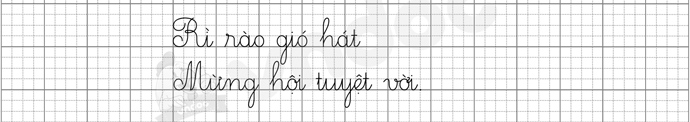 Rì rào gió hát
Mừng hội tuyệt vời.